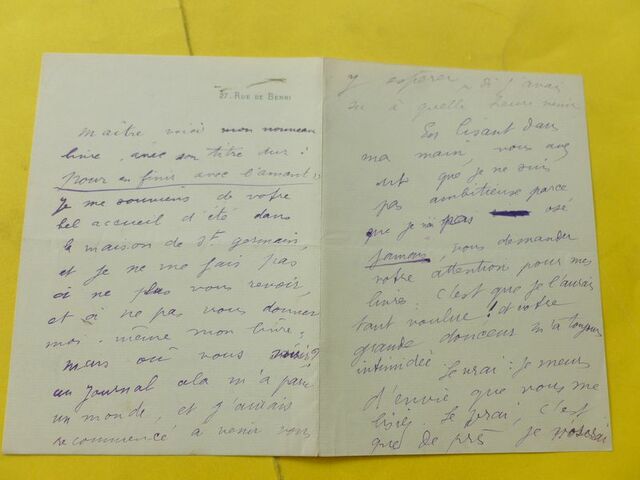 27. RUE DE BERRI
Maître voici mon nouveau
livre, avec son titre dur :
Pour en finir avec l'amant
Je me souviens de votre
bel accueil d'été dans
la maison de St. germain,
et je ne me fais pas
à ne plus vous revoir,
et à ne pas vous donner
moi-même mon livre,
mais où vous
au Journal cela m'a paru
un monde, et j'aurais
recommencé à venir vous
y espérer si j'avais
su à quelle heure venir
En lisant dans
ma main, vous avez
dit que je ne suis
pas ambitieuse parce
que je n'ai pas osé
jamais, vous demander
votre attention pour mes
livres : c'est que je l'aurais
tant voulue ! et votre
grande douceur m'a toujours
intimidée. Le vrai : je meurs
d'envie que vous me
lisiez. Le vrai, c'est
que de près je n'oserai